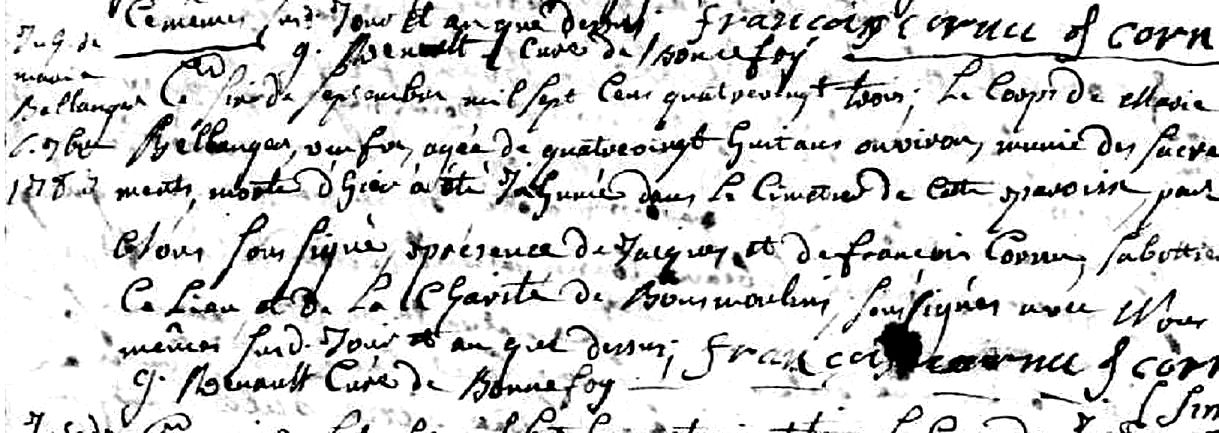 Ce mêmes susd. Jour et an que dessus; françois cornu J corn
g. Renault Curé de Bonnefoy
Inh. de
marie
Bellanger
6. 7bre
1783
Ce six de septembre mil sept cens quatrevingt trois; Le Corps de Marie
Bellanger, veufve, agée de quatrevingt huit ans environ, munie des sacre
ments, morte d'hier a été Inhumée dans Le Cimetiere de Cette paroisse, par
Nous sous signé, présence de Jacques et de françois Cornu, sabottier
Ce Lieu et de La Charité de Bonsmoulins, soussignés avec Nous
mêmes susd. Jour et an que dessus; françois cornu J corn
g. Renault Curé de Bonnefoy